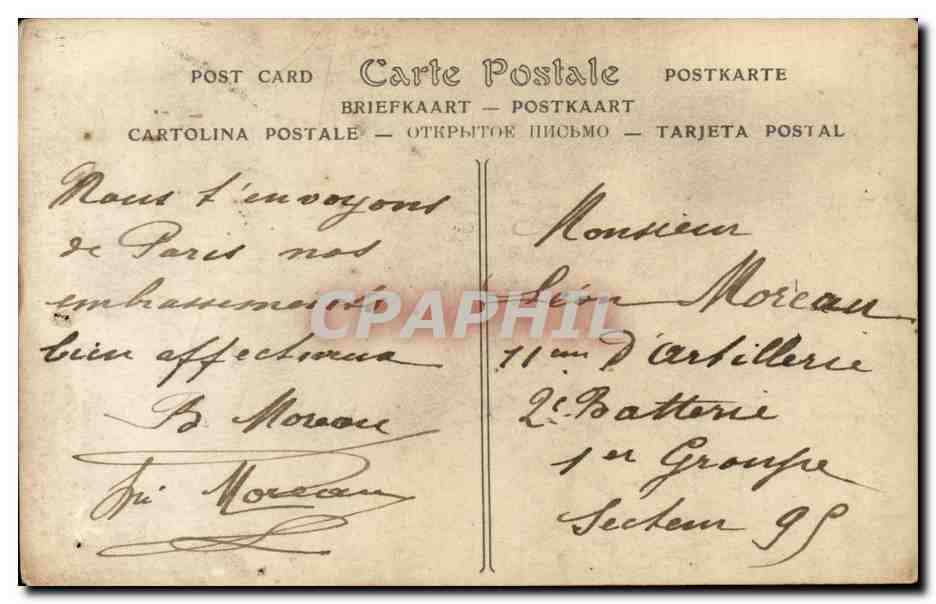 POST CARD Carte Postale POSTKARTE
BRIEFKAART — POSTKAART
CARTOLINA POSTALE — ОТКРЫТОЕ ПИСЬМО — TARJETA POSTAL
Nous t'envoyons
de Paris nos
embrassements
bien affectueux
B Moreau
Moreau
Monsieur
Léon Moreau
11eme D'artillerie
2e Batterie
1er Groupe
Secteur 95
CPAPHIL